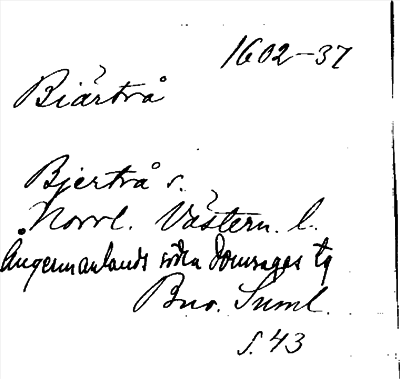 1602–37
Biärtrå
Bjertrå s.
Norrl. Västern. l.
Ångermanlands södra Domsagas tg
Bno. Suml.
s. 43